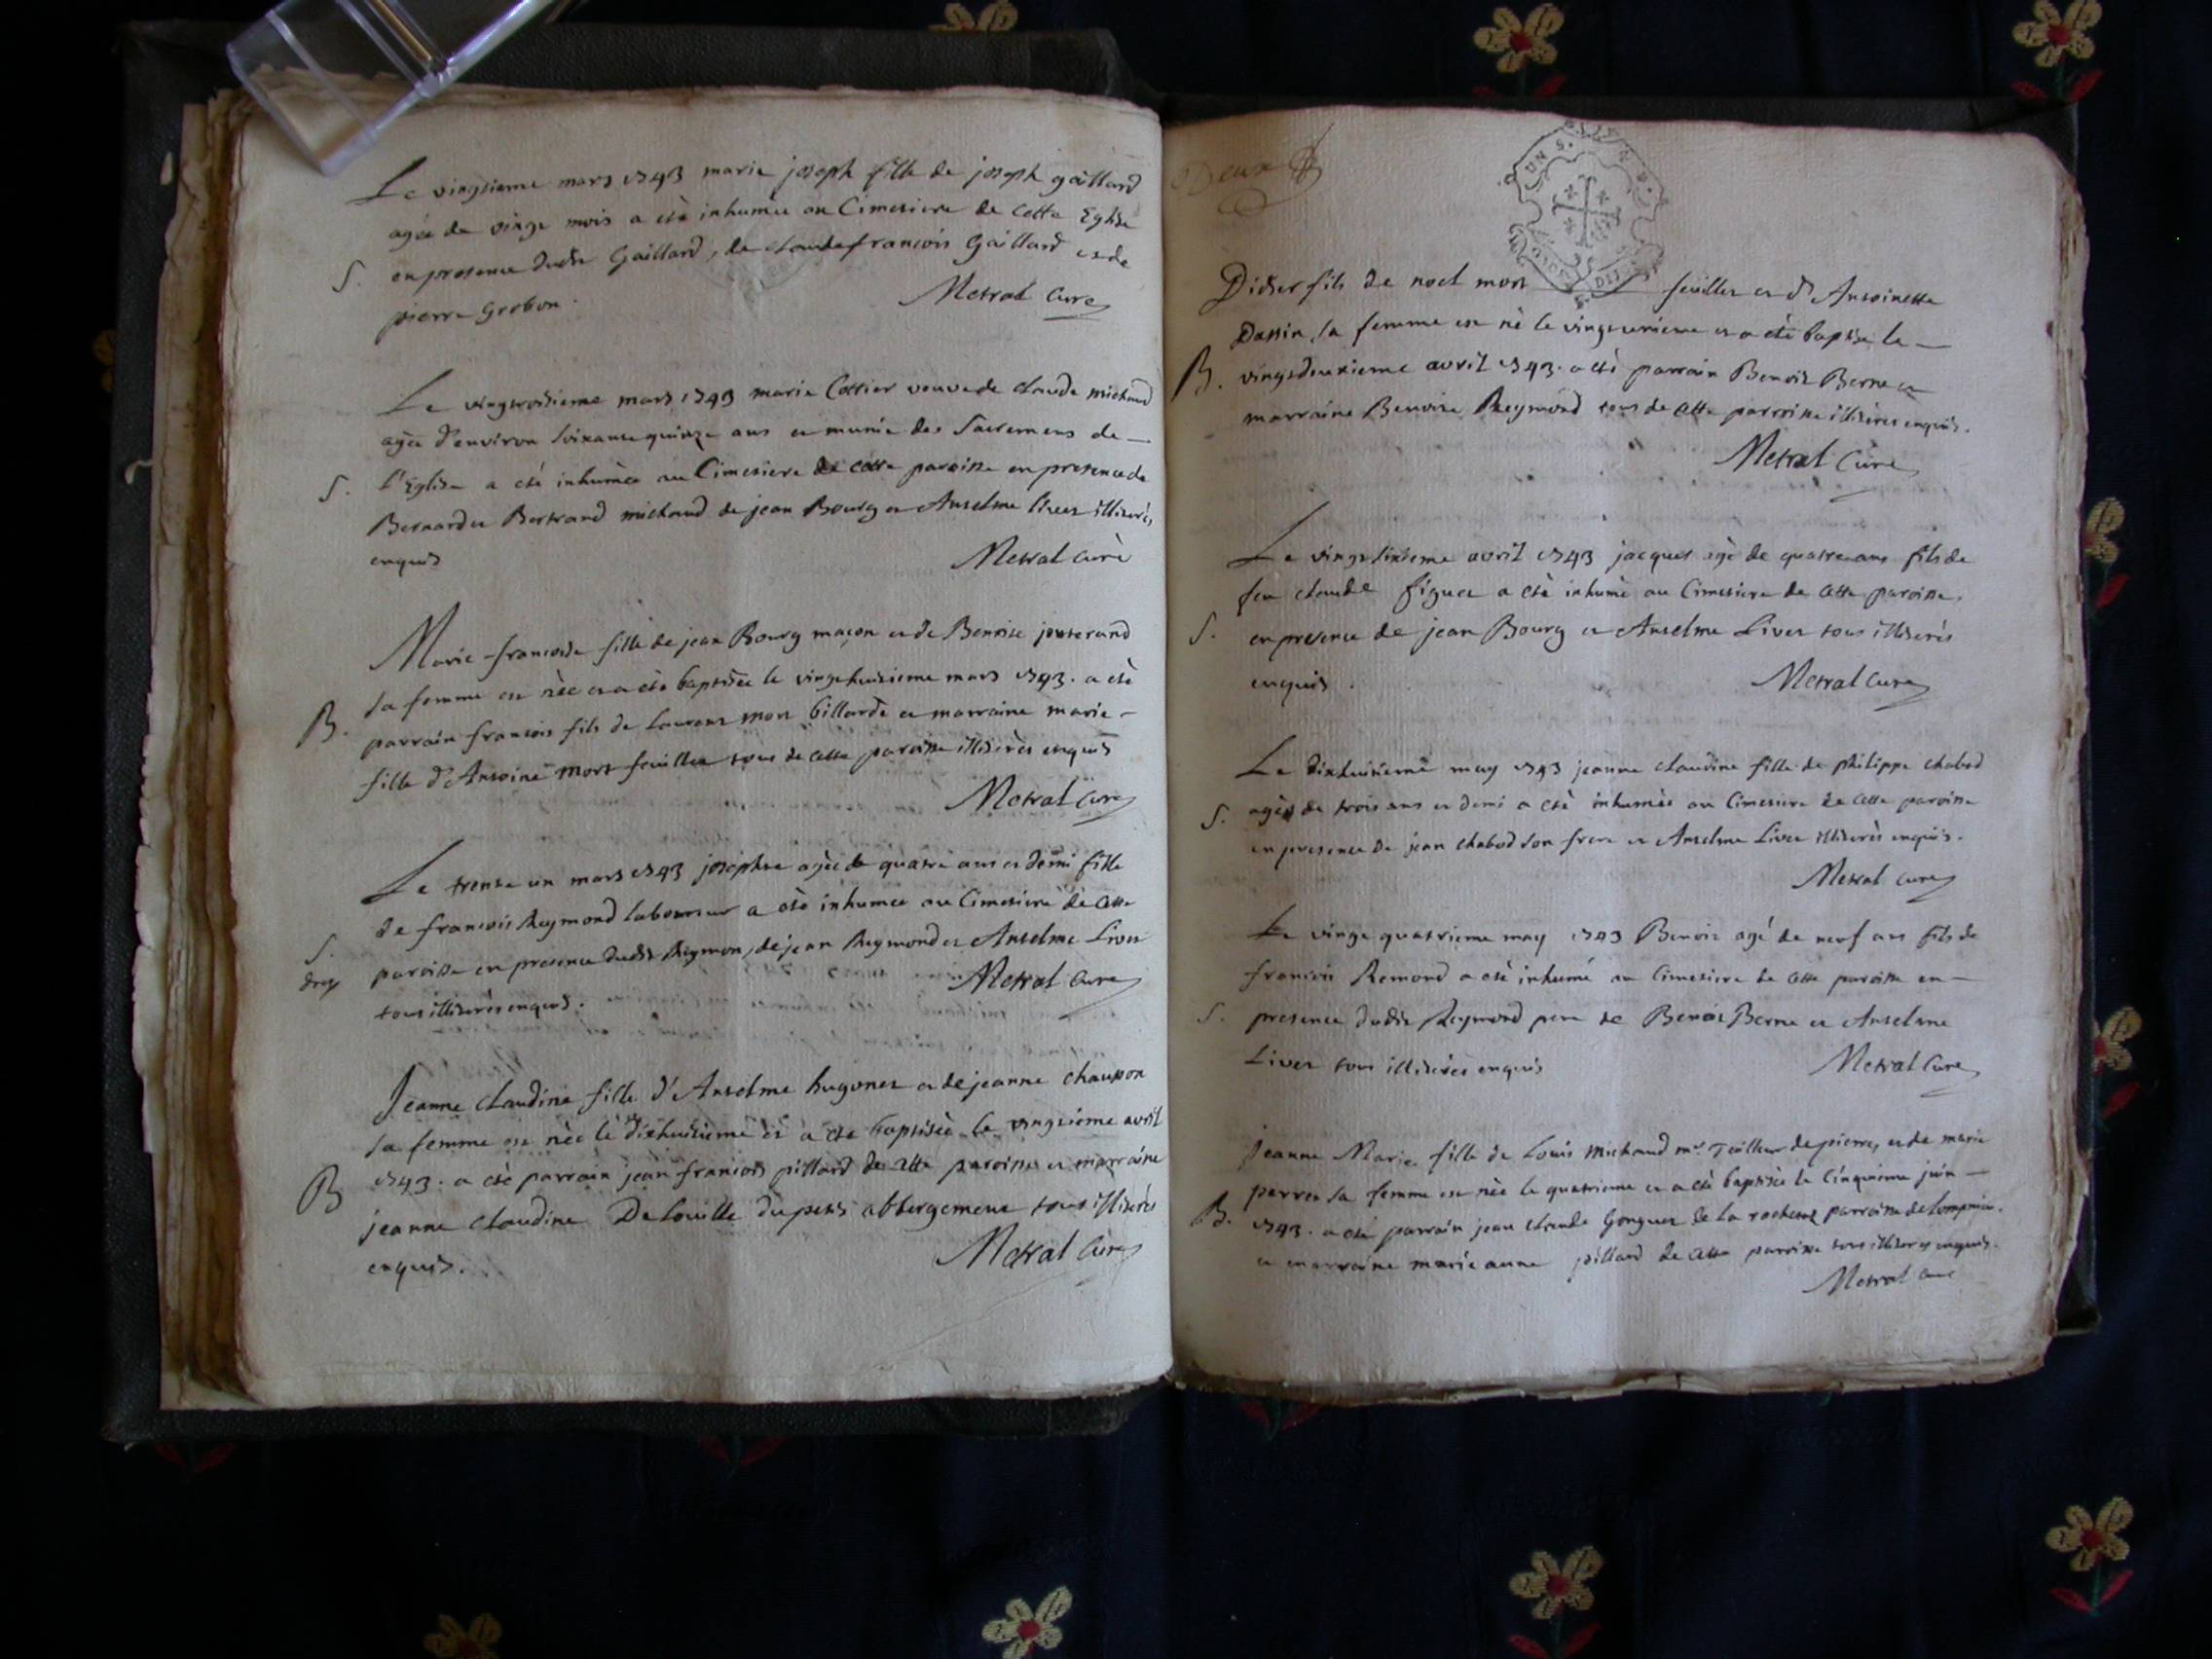 Le vingtieme mars 1743 marie joseph fille de joseph gaillard
agée de vingt mois a eté inhumée au Cimetiere de cette Eglise
S. en presence dudit Gaillard, de claude francois Gaillard et de
pierre Grobon.
Metral Curé
Le vingtroisieme mars 1743 marie Cottier veuve de claude michaud
agée d'environ soixante quinze ans et munie des Sacremens de
S. l'Eglise a eté inhumée au Cimetiere de cette paroisse en presence de
Bernard et Bertrand michaud de jean Bourg et Anselme Livet illiterés
enquis
Metral Curé
Marie-francoise fille de jean Bourg maçon et de Benoite
sa femme est née et a eté baptisée le vingthuitieme mars 1743. a eté
B. parrain francois fils de Laurent mort billardet et marraine marie
fille d'Antoine mort feuillet tous de cette paroisse illiterés enquis
Metral Curé
Le trente un mars 1743 josephte agée de quatre ans et demi fille
de francois Reymond laboureur a eté inhumée au Cimetiere de cette
S. paroisse en presence dudit Reymon, de jean Reymond et Anselme Livet
tous illiterés enquis.
Metral Curé
Jeanne claudine fille d'Anselme hugonet et de jeanne
sa femme est née le dixhuitieme et a eté baptisée le vingtieme avril
B 1743. a eté parrain jean francois pillard de cette paroisse et marraine
jeanne claudine Delouille du petit abbergement tous illiterés
enquis.
Metral Curé
Deux
Didier fils de noel mort feuillet et d'Antoinette
Dassin, sa femme est né le vingtunieme et a eté baptisé le
B. vingtdeuxieme avril 1743. a eté parrain Benoit Berne et
marraine Benoite Reymond tous de cette paroisse illiterés enquis.
Metral Curé
Le vingtsixieme avril 1743 jacques agé de quatre ans fils de
feu claude figuet a eté inhumé au Cimetiere de cette paroisse,
S. en presence de jean Bourg et Anselme Livet tous illiterés
enquis.
Metral Curé
Le dixhuitieme may 1743 jeanne claudine fille de philippe chabod
S. agée de trois ans et demi a eté inhumée au Cimetiere de cette paroisse
en presence de jean chabod son frere et Anselme Livet illiterés enquis.
Metral Curé
Le vingt quatrieme may 1743 Benoit agé de neuf ans fils de
francois Remond a eté inhumé au Cimetiere de cette paroisse en
S. presence dudit Reymond pere de Benoit Berne et Anselme
Livet tous illiterés enquis
Metral Curé
Jeanne Marie fille de Louis Michaud mre Tailleur de pierre, et de marie
perret sa femme est née le quatrieme et a eté baptisée le Cinquieme juin
B. 1743. a eté parrain jean claude Gonguet de la paroisse de Lompnieu.
et marraine marie anne pillard de cette paroisse tous illiterés enquis.
Metral Curé